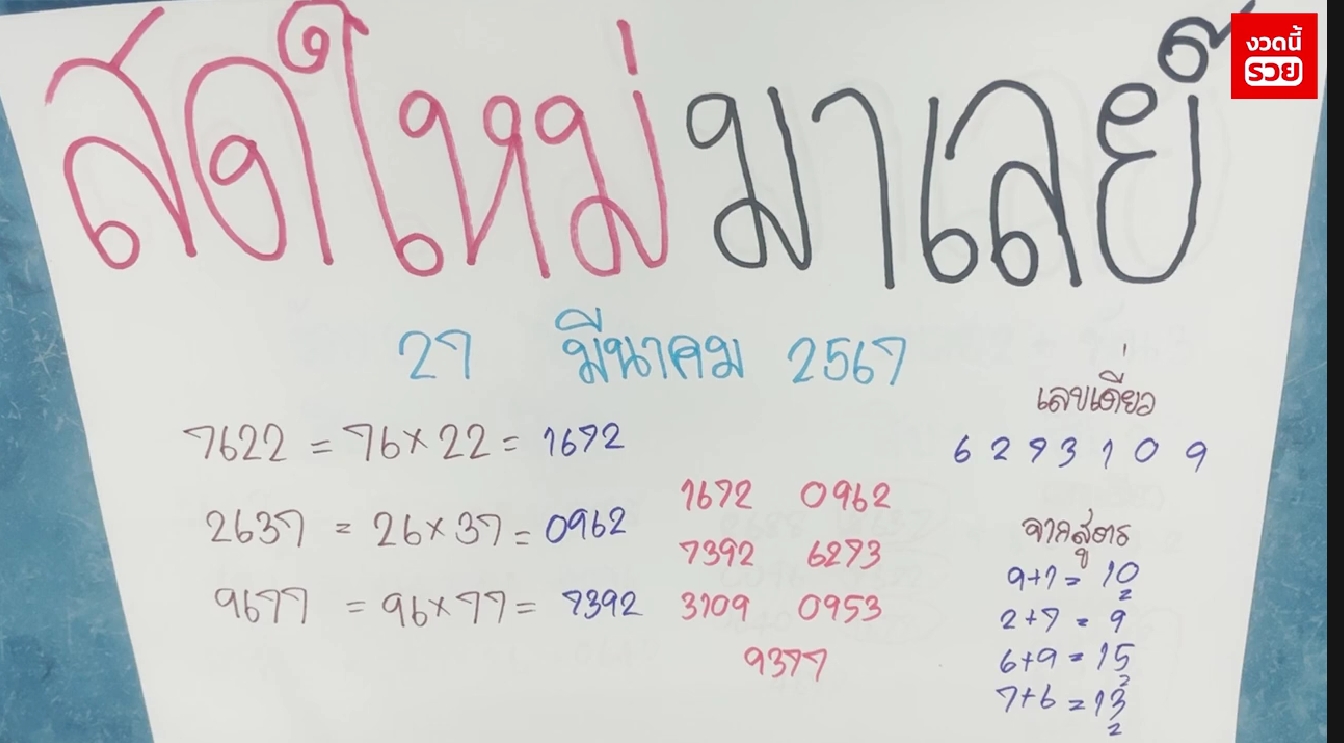 งวดนี้
รวย
สดใหม่ มาเลย์
27 มีนาคม 2567
7622 = 76 × 22 = 1672
2637 = 26 × 37 = 0962
9677 = 96 × 77 = 7392
1672 0962
7392 6293
3109 0953
9377
เลขเดี่ยว
6 2 9 3 1 0 9
จากสูตร
9+1 = 10
2
2+7 = 9
6+9 = 15
2
7+6 = 13
2